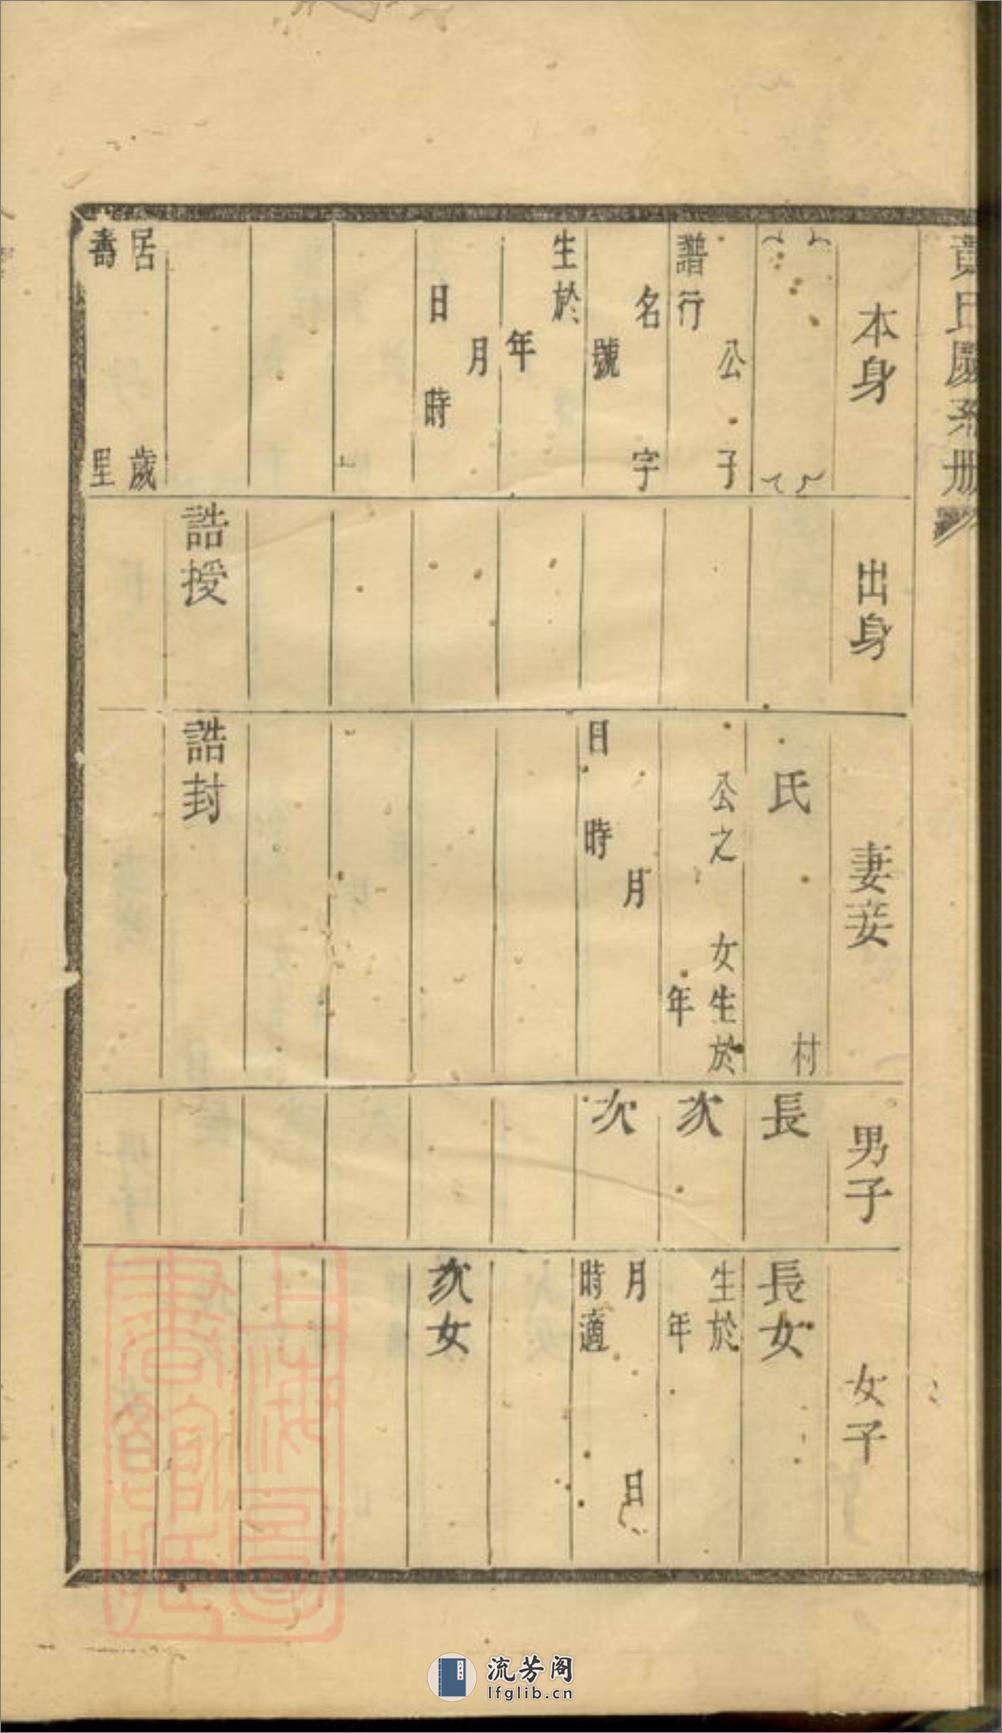 黃氏慶系册
本身
出身
妻妾
男子
女子
公 子
譜行
名 字
號
生於
年
月
日 時
居 歲
壽 里
誥授
氏 村
公之 女生於
年
月
日 時
誥封
長
次
次
長女
生於
年
月 日
時適
次女
上海圖
書館藏
流芳阁
lfglib.cn